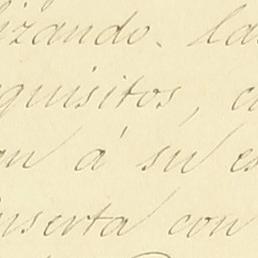 izando. La
quisitos, c
an á su es
inserta con